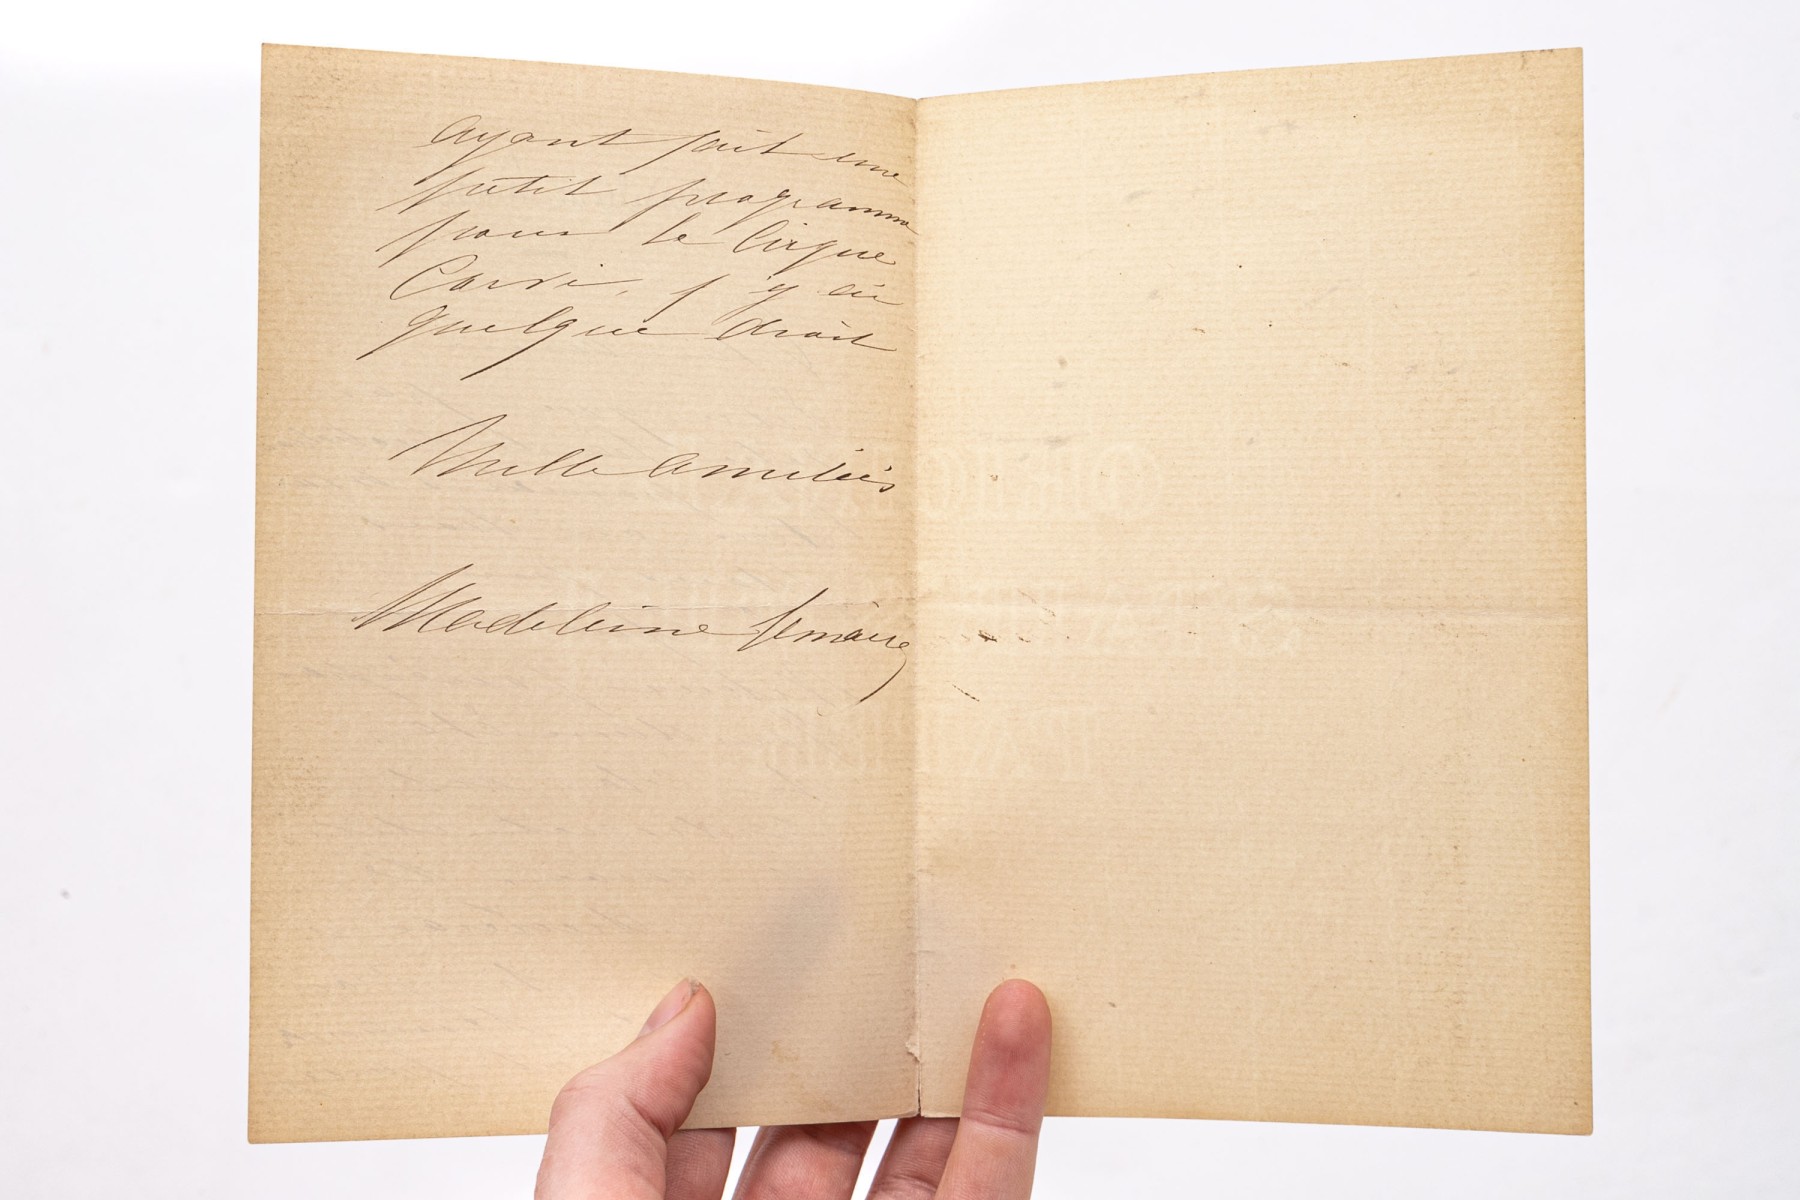 ayant fait une
petit programme
pour le Cirque
Corvi, j'y ai
quelque droit
Mille amitiés
Madeleine Lemaire